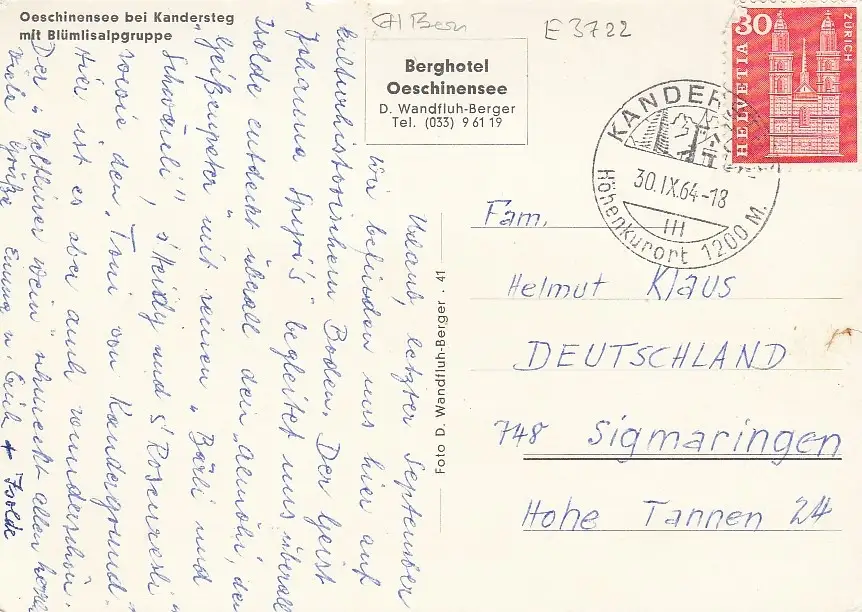 Oeschinensee bei Kandersteg
mit Blümlisalpgruppe
CH Bern
E 3722
Berghotel
Oeschinensee
D. Wandfluh-Berger
Tel. (033) 9 61 19
30
HELVETIA
ZÜRICH
KANDERS
30.IX.64-18
Höhenkurort 1200 M.
Urlaub, letzter September
Wir befinden uns hier auf
kulturhistorischem Boden. Der Geist
"Johanna Spipi's" begleitet uns überall
Isolde entdeckt überall den "Almöhi", den
"Geißenpeter" mit seinen "Bärli und
Schwänli", s'Heidy und s'Rosenresli
sowie den "Toni von Kandergrund"
Hier ist es aber auch wunderschön.
Der "Veltliner Wein" schmeckt allen
Viele Grüße Emmy u. Erich + Isolde
Foto D. Wandfluh-Berger . 41
Fam.
Helmut Klaus
DEUTSCHLAND
748 Sigmaringen
Hohe Tannen 24